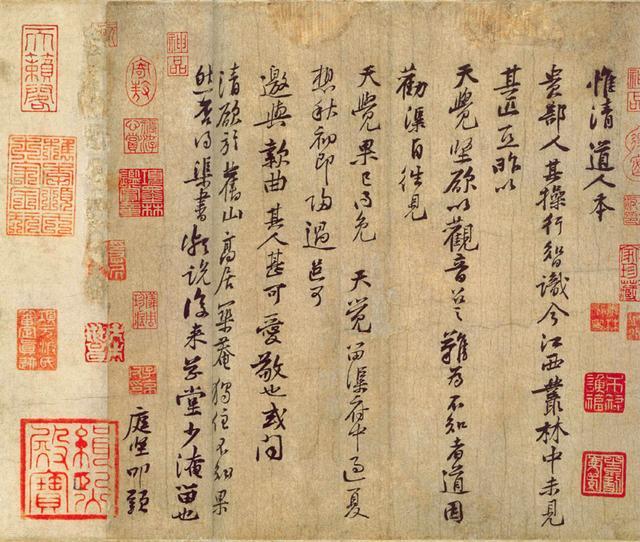 惟清道人本
貴部人其操行智識今江西叢林中未見
其匹亞昨以
天覺堅欲以觀音召之難為不知者道因
勸渠自往見
天覺果已得免 天覺留渠府中過夏
想秋初即歸過邑可
邀與款曲其人甚可愛敬也或問
清欲於舊山高居築菴獨住不知果
然否得渠書 說後來草堂少淹留也
庭堅叩頭
神品
天籟閣
緝熙殿寶